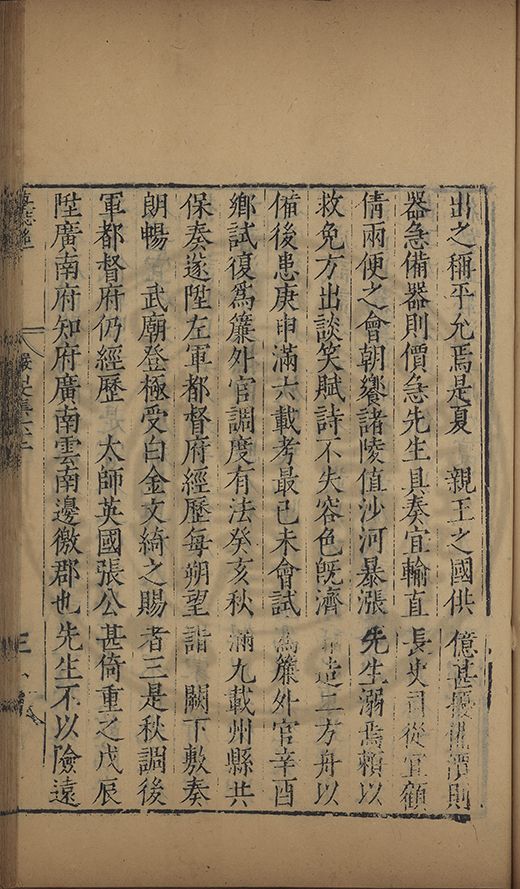 出之稱平允焉是夏　親王之國供億甚擾備價則
器急備器則價急先生具奏宜輸直長史司從宜顧
倩兩便之會朝饗諸陵值沙河暴漲先生溺焉賴以
救免方出談笑賦詩不失容色旣濟造二方舟以
備後患庚申滿六載考最己未會試爲簾外官辛酉
鄉試復爲簾外官調度有法癸亥秋滿九載州縣共
保奏遂陞左軍都督府經歷每朔望詣　闕下敷奏
朗暢　武廟登極受白金文綺之賜者三是秋調後
軍都督府仍經歷　太師英國張公甚倚重之戊辰
陞廣南府知府廣南雲南邊徼郡也先生不以險遠
三